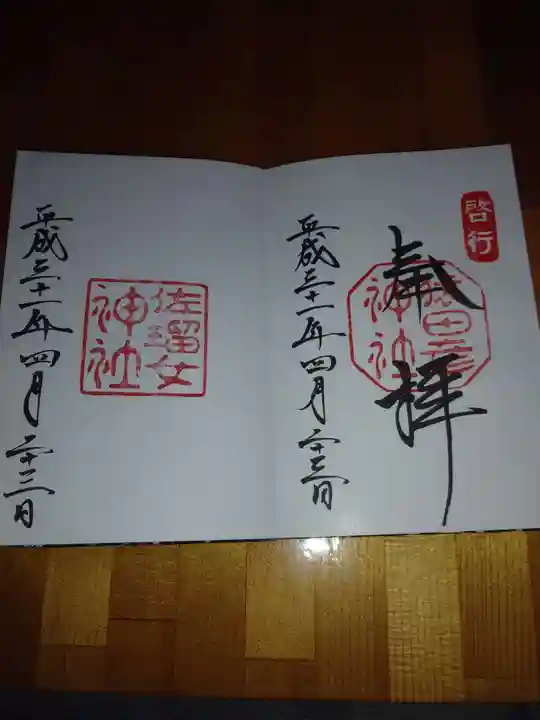 啓行
奉拝
猿田彦
神社
平成三十一年四月二十三日
佐瑠女
神社
平成三十一年四月二十三日